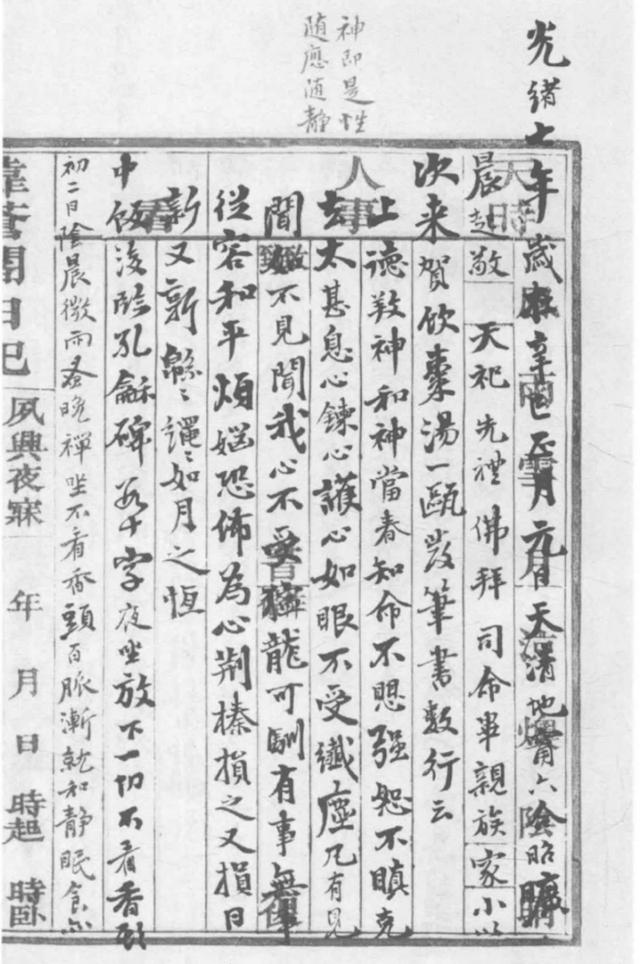 神即是性
随應随静
光緒七年歲在辛巳正月元日天清地甯六陰昭曠
晨起敬天祀先禮佛拜司命畢親族家小以
次来賀飲棗湯一甌發筆書数行云
上德敦神和神當春知命不思强恕不瞋克
去太甚息心鍊心護心如眼不受纖塵凡有見
聞如不見聞我心不受獰龍可馴有事無事
從容和平煩惱恐怖為心荆榛損之又損日
新又新緜〻繩〻如月之恆
中飯後臨孔龢碑若干字夜坐放下一切不看香頭
初二日陰晨微雨蚤晚禪坐不看香頭百脈漸就和静眠食亦
日記
夙興夜寐 年 月 日 時起 時卧
天時
人事